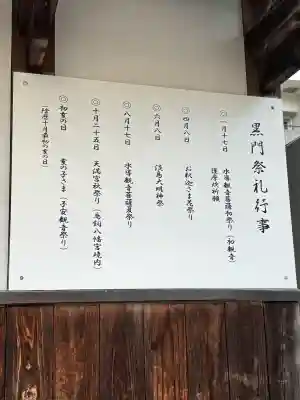 黒門祭礼行事
◎一月十七日
水導観音菩薩初祭り(初観音)
護摩焼祈願
◎四月八日
お釈迦さま花祭り
◎六月八日
淡島大明神祭
◎八月十七日
水導観音菩薩夏祭り
◎十月二十五日
天満宮秋祭り(鳥飼八幡宮境内)
◎初亥の日
亥の子さま(子安観音祭り)
(陰暦十月最初の亥の日)